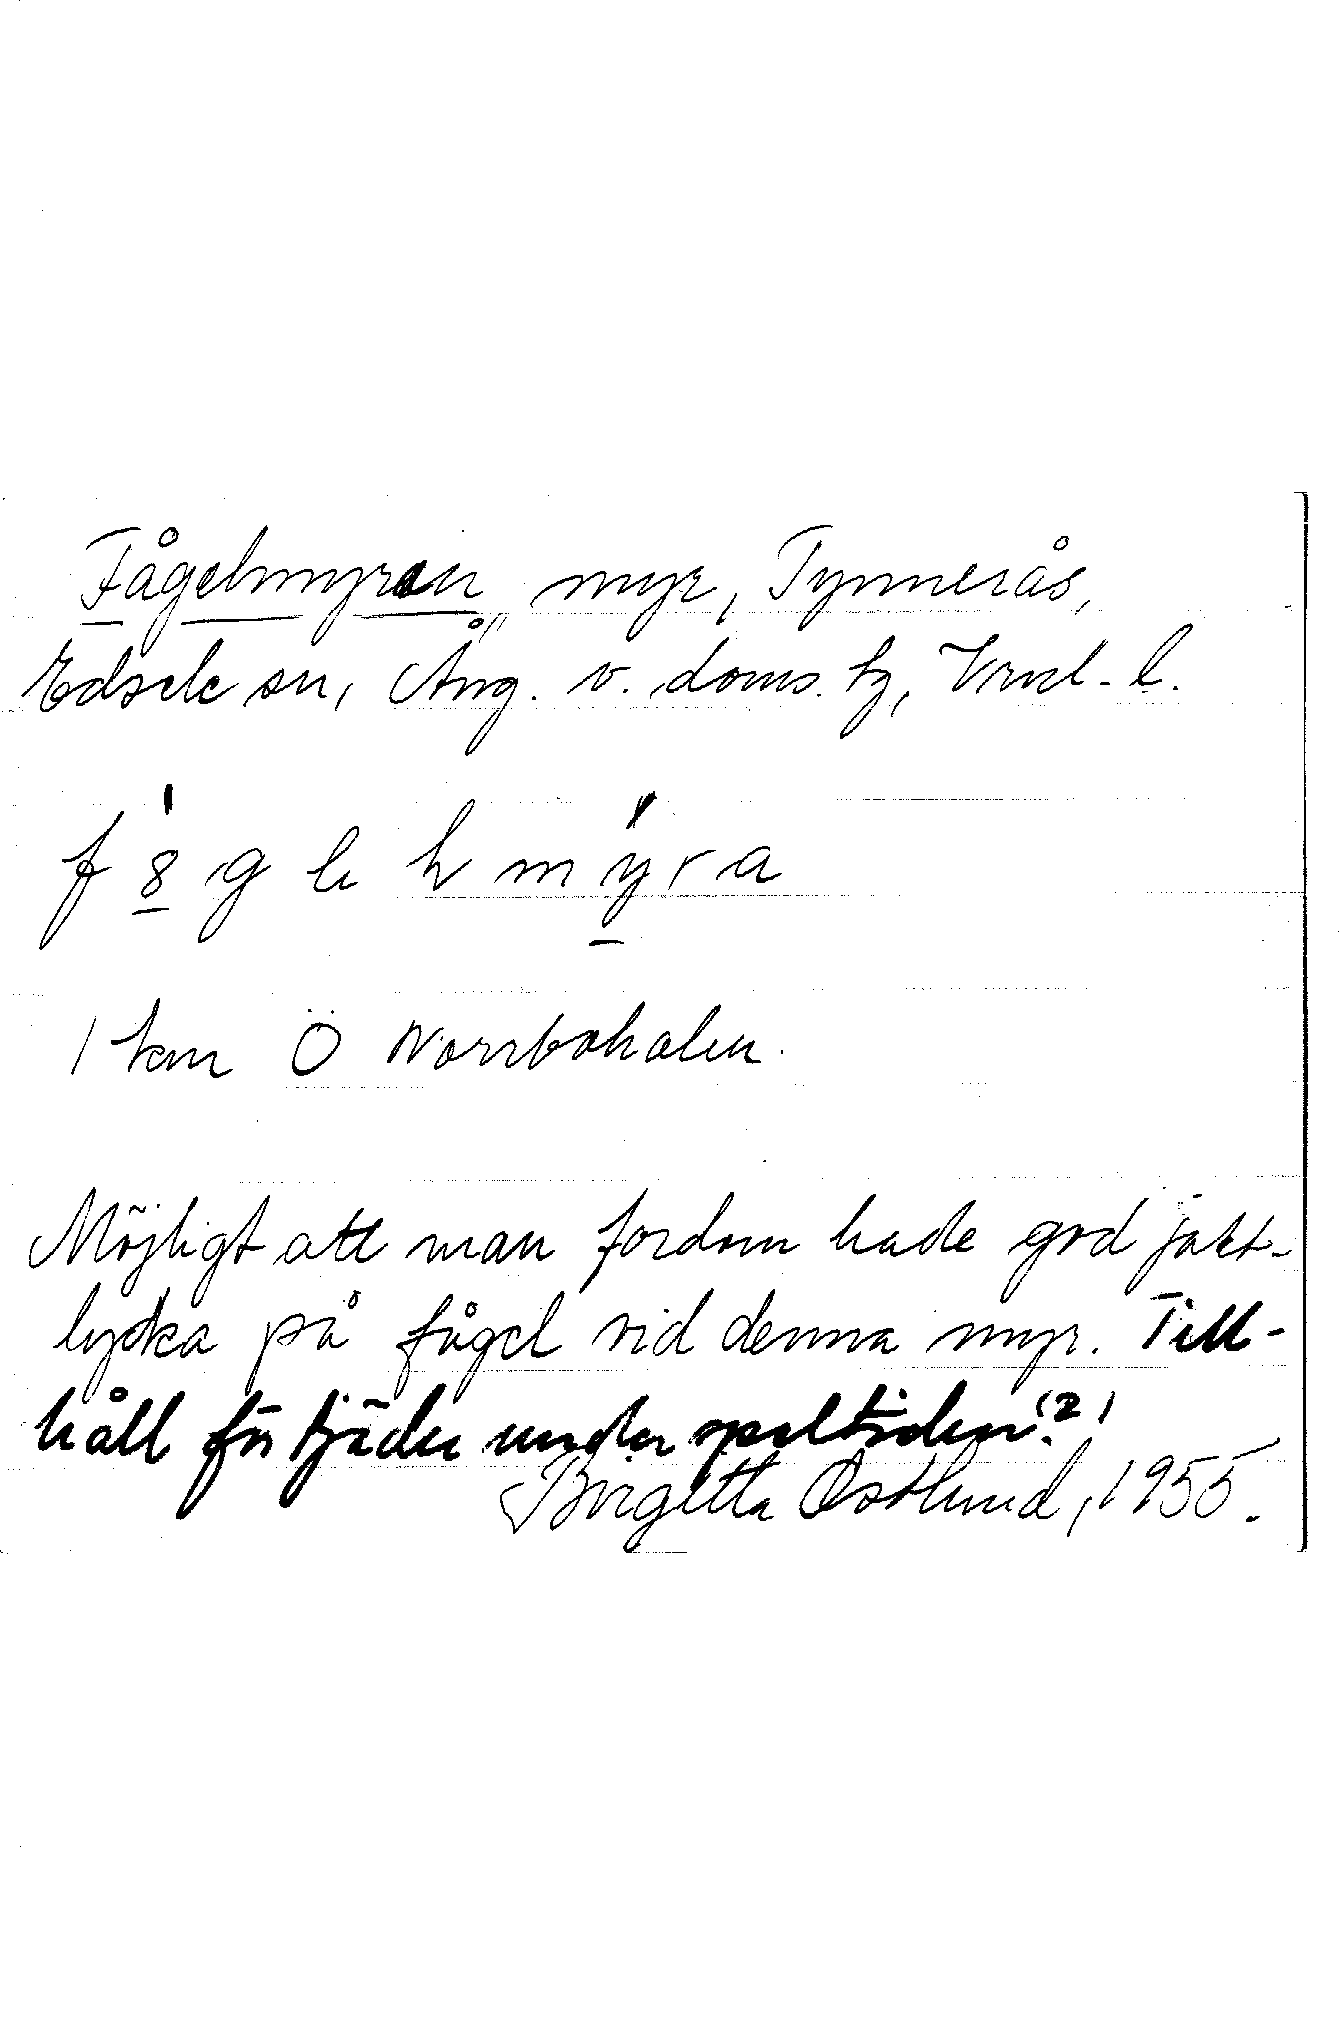 Fågelmyren, myr, Tynnerås,
Edsele sn, Ång. v. doms. hg, Vrnl - l.
f 8 g e l m y r a
1 km Ö Norrbokalen.
Möjligt att man fordom hade god jakt-
lycka på fågel vid denna myr. Till-
håll för tjäder under speltiden(?)
Birgitta Östlund, 1955.